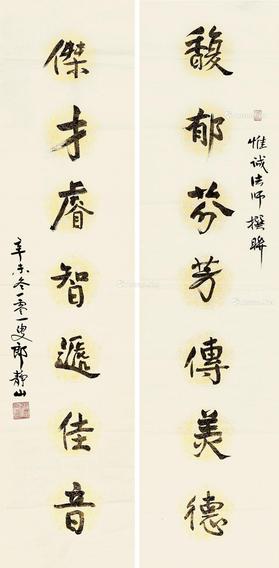 馥郁芬芳傳美德
惟诚法师撰聯
傑才睿智遞佳音
辛未冬一零一叟郎静山